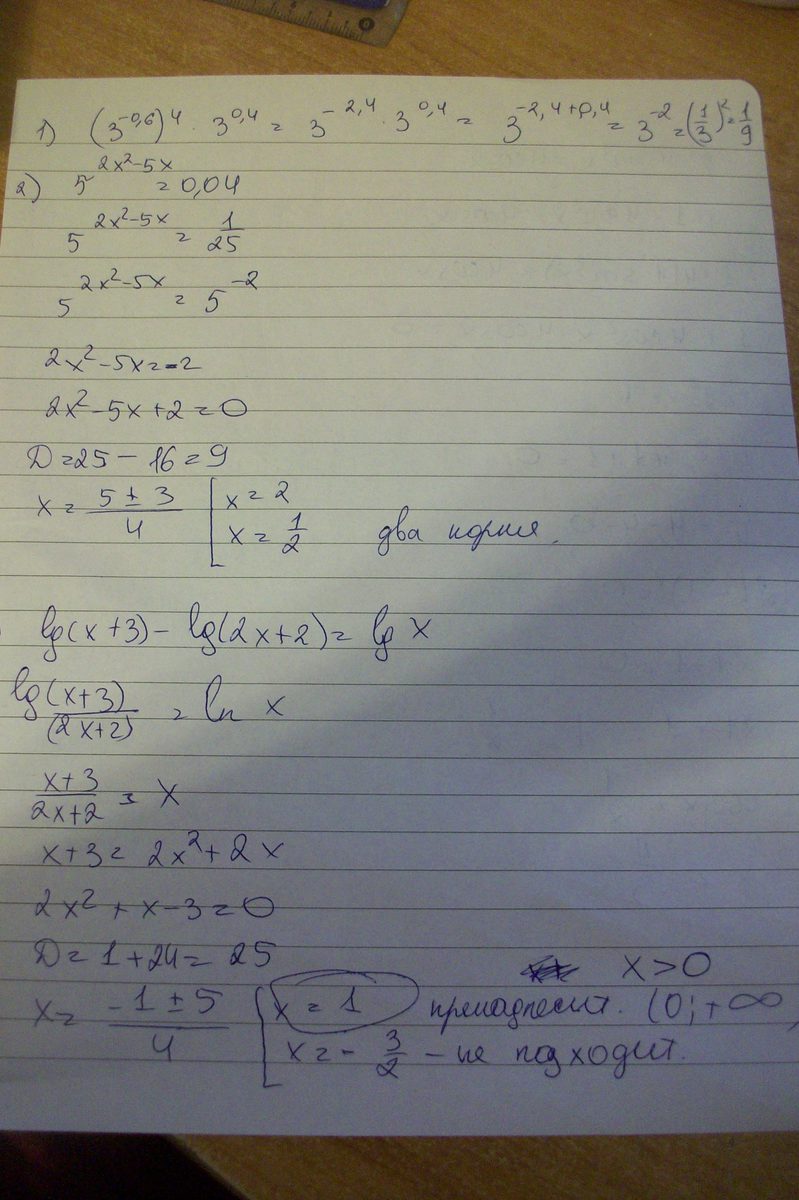 1) (3^-0,6)^4 · 3^0,4 = 3^-2,4 · 3^0,4 = 3^-2,4+0,4 = 3^-2 = (1/3)^2 = 1/9
2) 5^2x²-5x = 0,04
5^2x²-5x = 1/25
5^2x²-5x = 5^-2
2x²-5x=-2
2x²-5x+2=0
D=25-16=9
x = (5±3)/4 [x=2 x=1/2 два корня.
lg(x+3)-lg(2x+2)=lg x
lg (x+3)/(2x+2) = ln x
(x+3)/(2x+2) = x
x+3=2x²+2x
2x²+x-3=0
D=1+24=25
x>0
x = (-1±5)/4 [x=1 (0;+∞
x=-3/2 - не подходит.